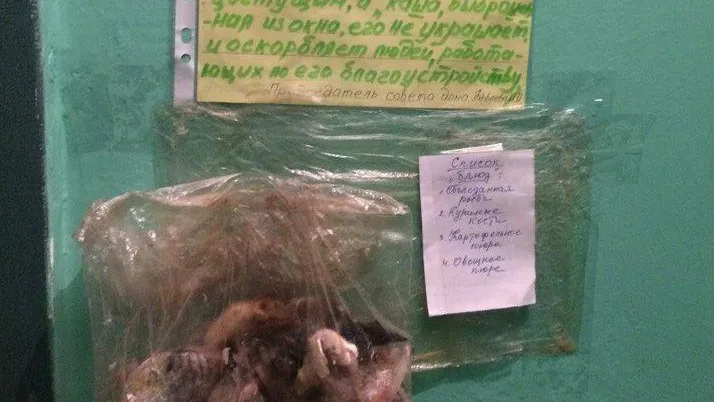 цветущим, а „каша, выброшен-
-ная из окна, его не украшает
и оскорбляет людей, работа-
ющих по его благоустройству
Председатель совета дома
Список
блюд:
1. Обглоданная
рыба
2. Куриные
кости
3. Картофельное
пюре
4. Овощное
пюре